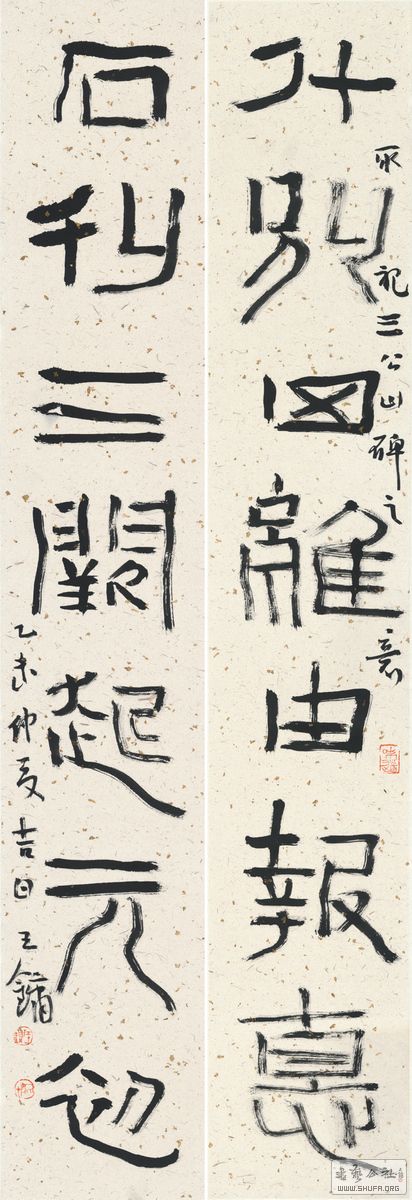 什別四離由報惪
取祀三公山碑之意
石刊三闕起元初
乙未仲夏吉日王鏞
書藝公社
WWW.SHUFA.ORG